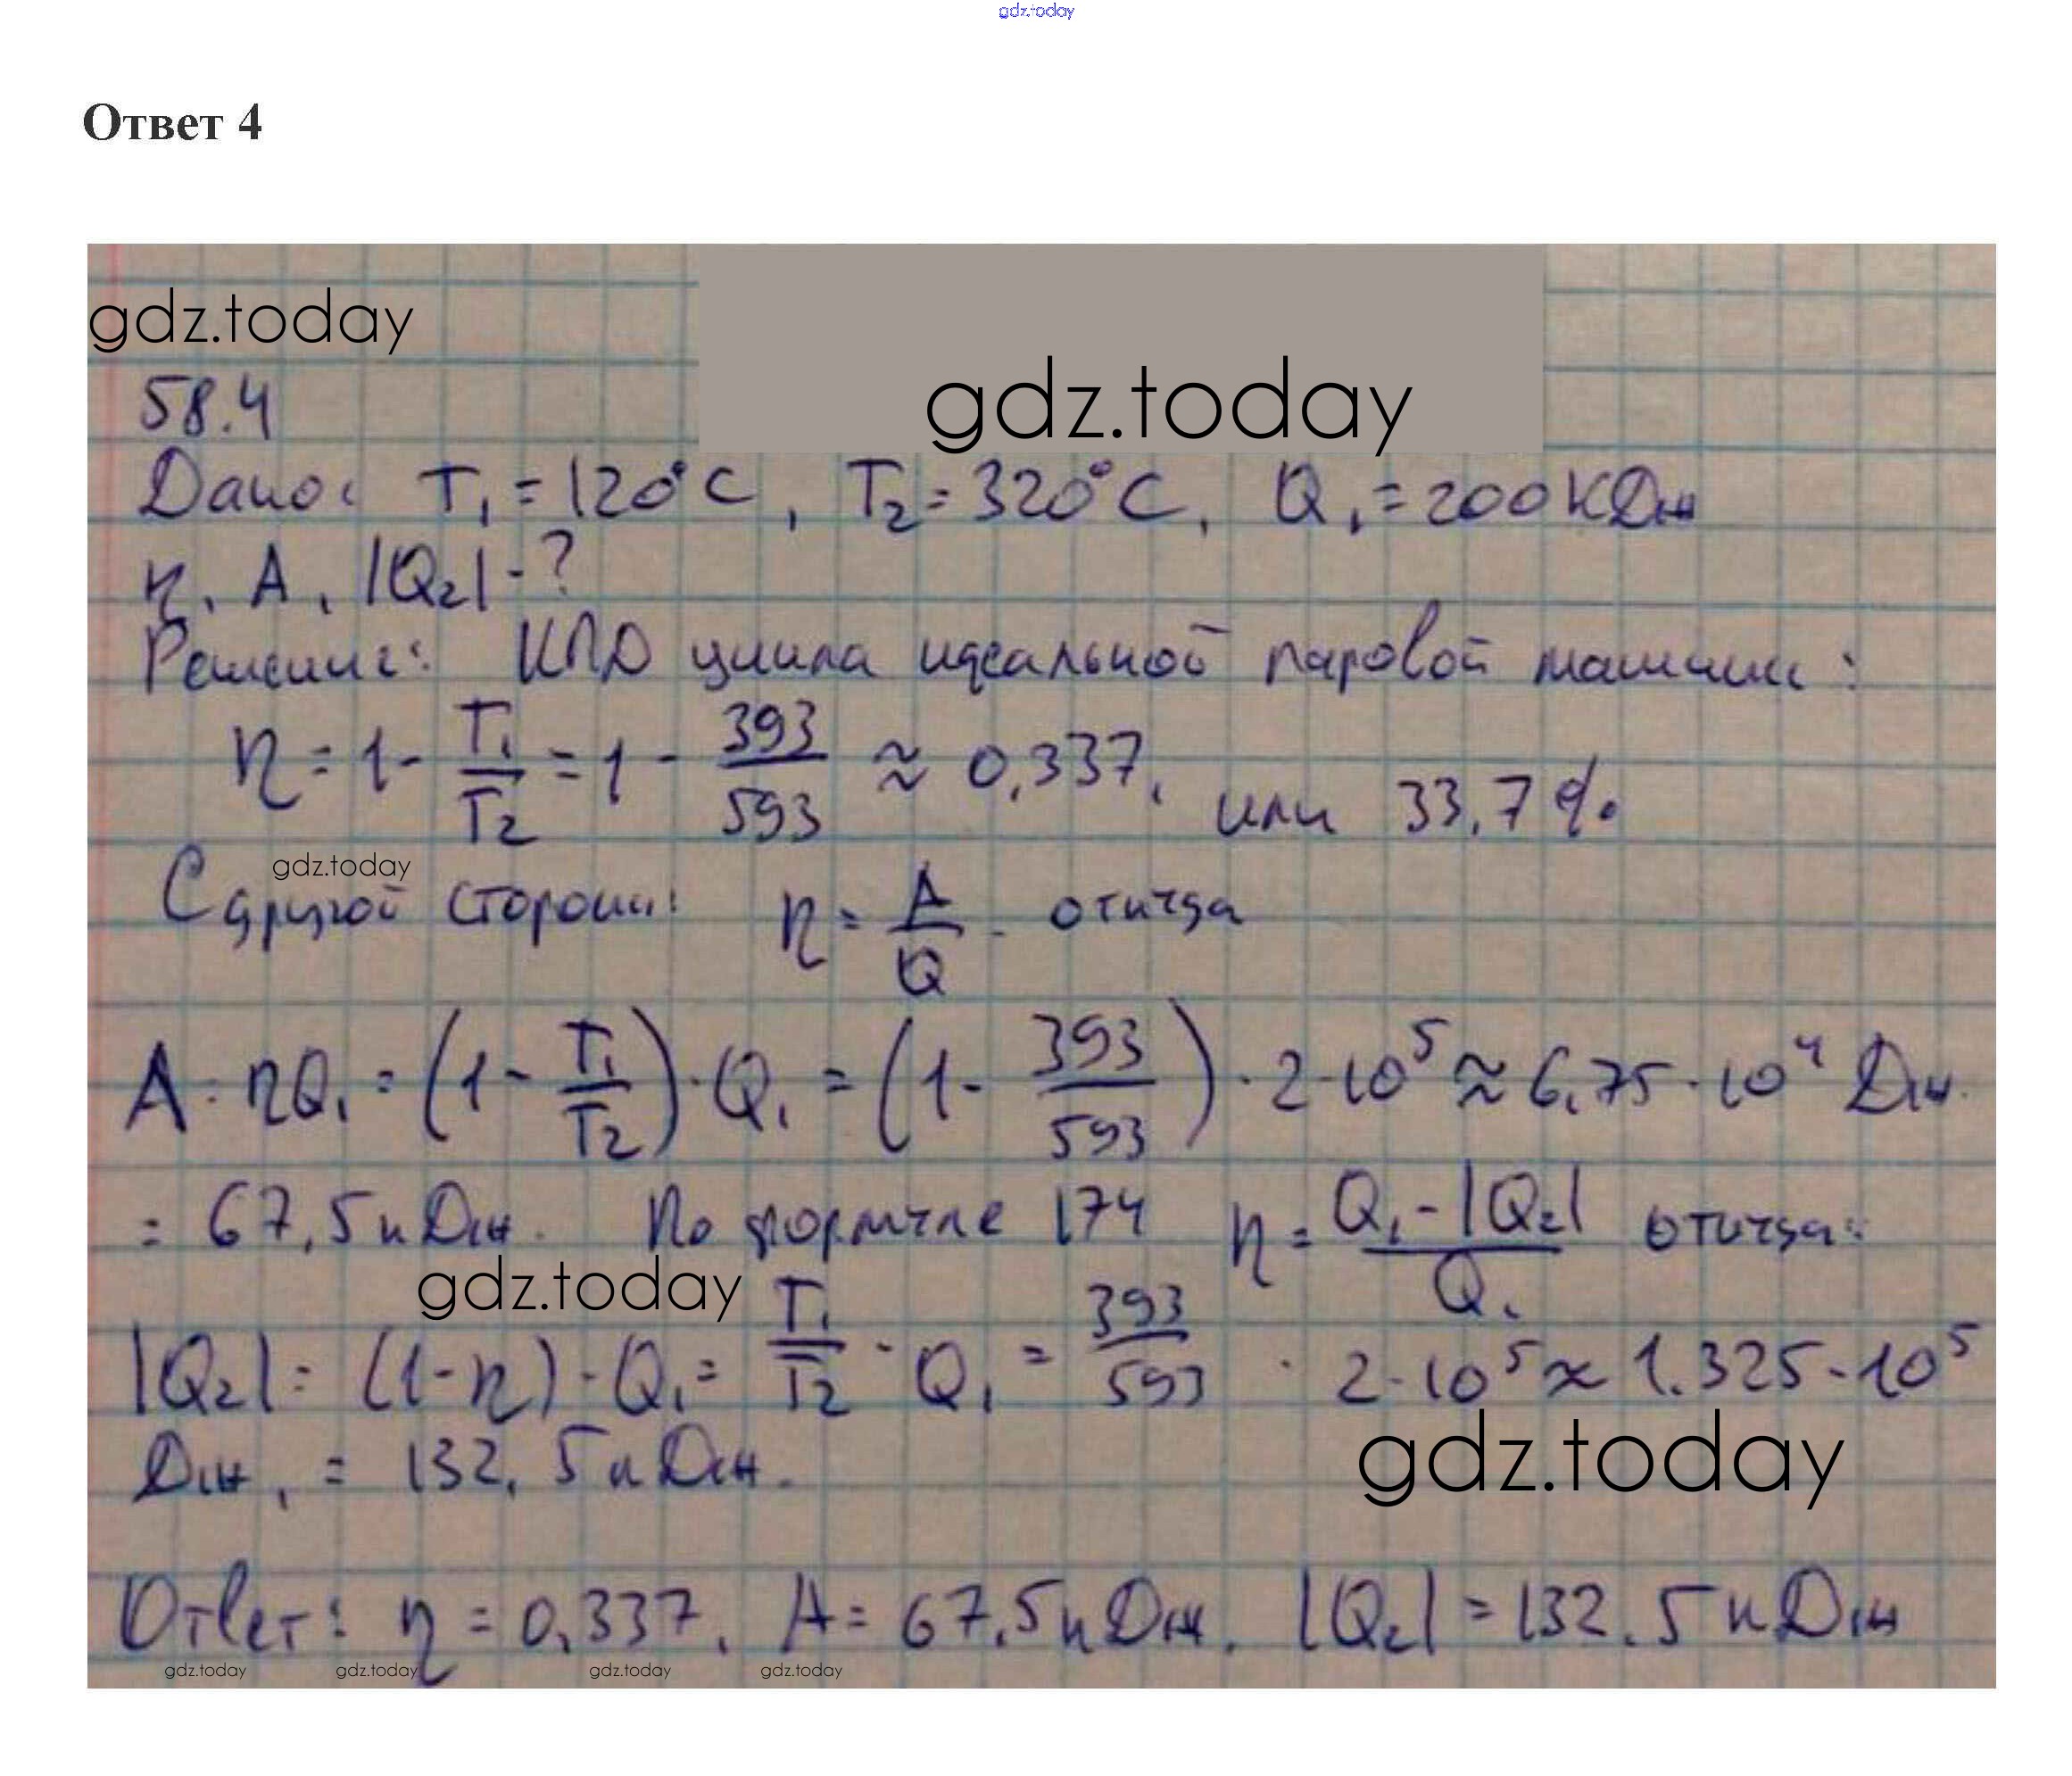 gdz.today
Ответ 4
gdz.today
gdz.today
58.4
Дано: T₁ = 120°C, T₂ = 320°C, Q₁ = 200 кДж
η, A, |Q₂| - ?
Решение: КПД цикла идеальной паровой машины:
η = 1 - T₁/T₂ = 1 - 393/593 ≈ 0,337, или 33,7 %
gdz.today
С другой стороны: η = A/Q. откуда
A = ηQ₁ = (1 - T₁/T₂) · Q₁ = (1 - 393/593) · 2·10⁵ ≈ 6,75 · 10⁴ Дж.
= 67,5 кДж. По формуле 174 η = (Q₁ - |Q₂|)/Q₁ откуда:
gdz.today
|Q₂| = (1-η) · Q₁ = T₁/T₂ · Q₁ = 393/593 · 2·10⁵ ≈ 1.325·10⁵
Дж, = 132,5 кДж.
gdz.today
Ответ: η = 0,337, A = 67,5 кДж, |Q₂| = 132.5 кДж
gdz.today gdz.today gdz.today gdz.today